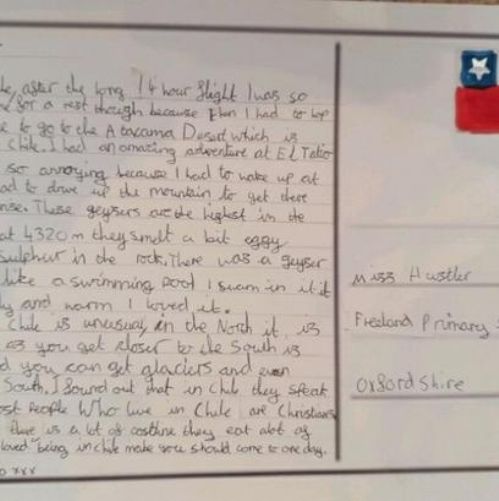 after the long 14 hour flight I was so
for a rest though because then I had to hop
to go to the Atacama Desert which is
Chile. I had an amazing adventure at El Tatio
so annoying because I had to wake up at
to drive up the mountain to get there
These geysers are the highest in the
at 4320m they smelt a bit eggy
sulphur in the rock. There was a geyser
like a swimming pool I swam in it it
and warm I loved it.
Chile is unusual in the North it is
as you get closer to the South is
you can get glaciers and even
South. I found out that in Chile they speak
people who live in Chile are Christians
there is a lot of they eat alot of
loved being in chile make you should come to one day.
xxx
Miss Hustler
Freeland Primary
Oxfordshire